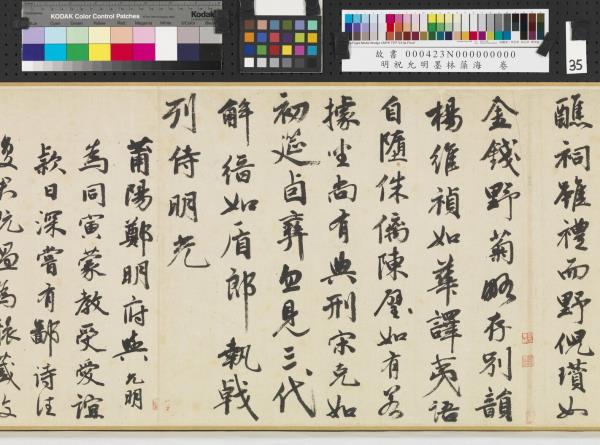 KODAK Color Control Patches
Kodak
故書 000423N000000000
明祝允明墨林藻海 卷
35
醮祠雖禮而野倪瓚如
金錢野菊略存別韻
楊維禎如華譯夷語
自隨侏儒陳璧如有若
據坐尚有典刑宋克如
初筵卣彝忽見三代
解縉如盾郎執戟
列侍明光
莆陽鄭明府與允明
為同寅蒙教受愛誼
款日深嘗有鄙詩往